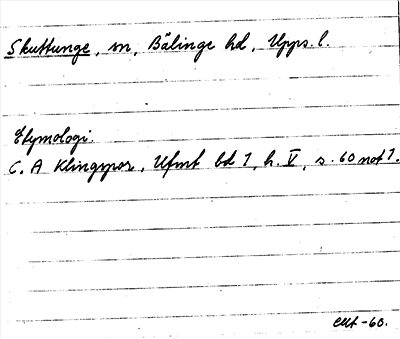 Skuttunge, sn, Bälinge hd, Upps. l.
Etymologi.
C. A Klingspor, Ufmt bd 1, h. V, s. 60 not 1.
-60.